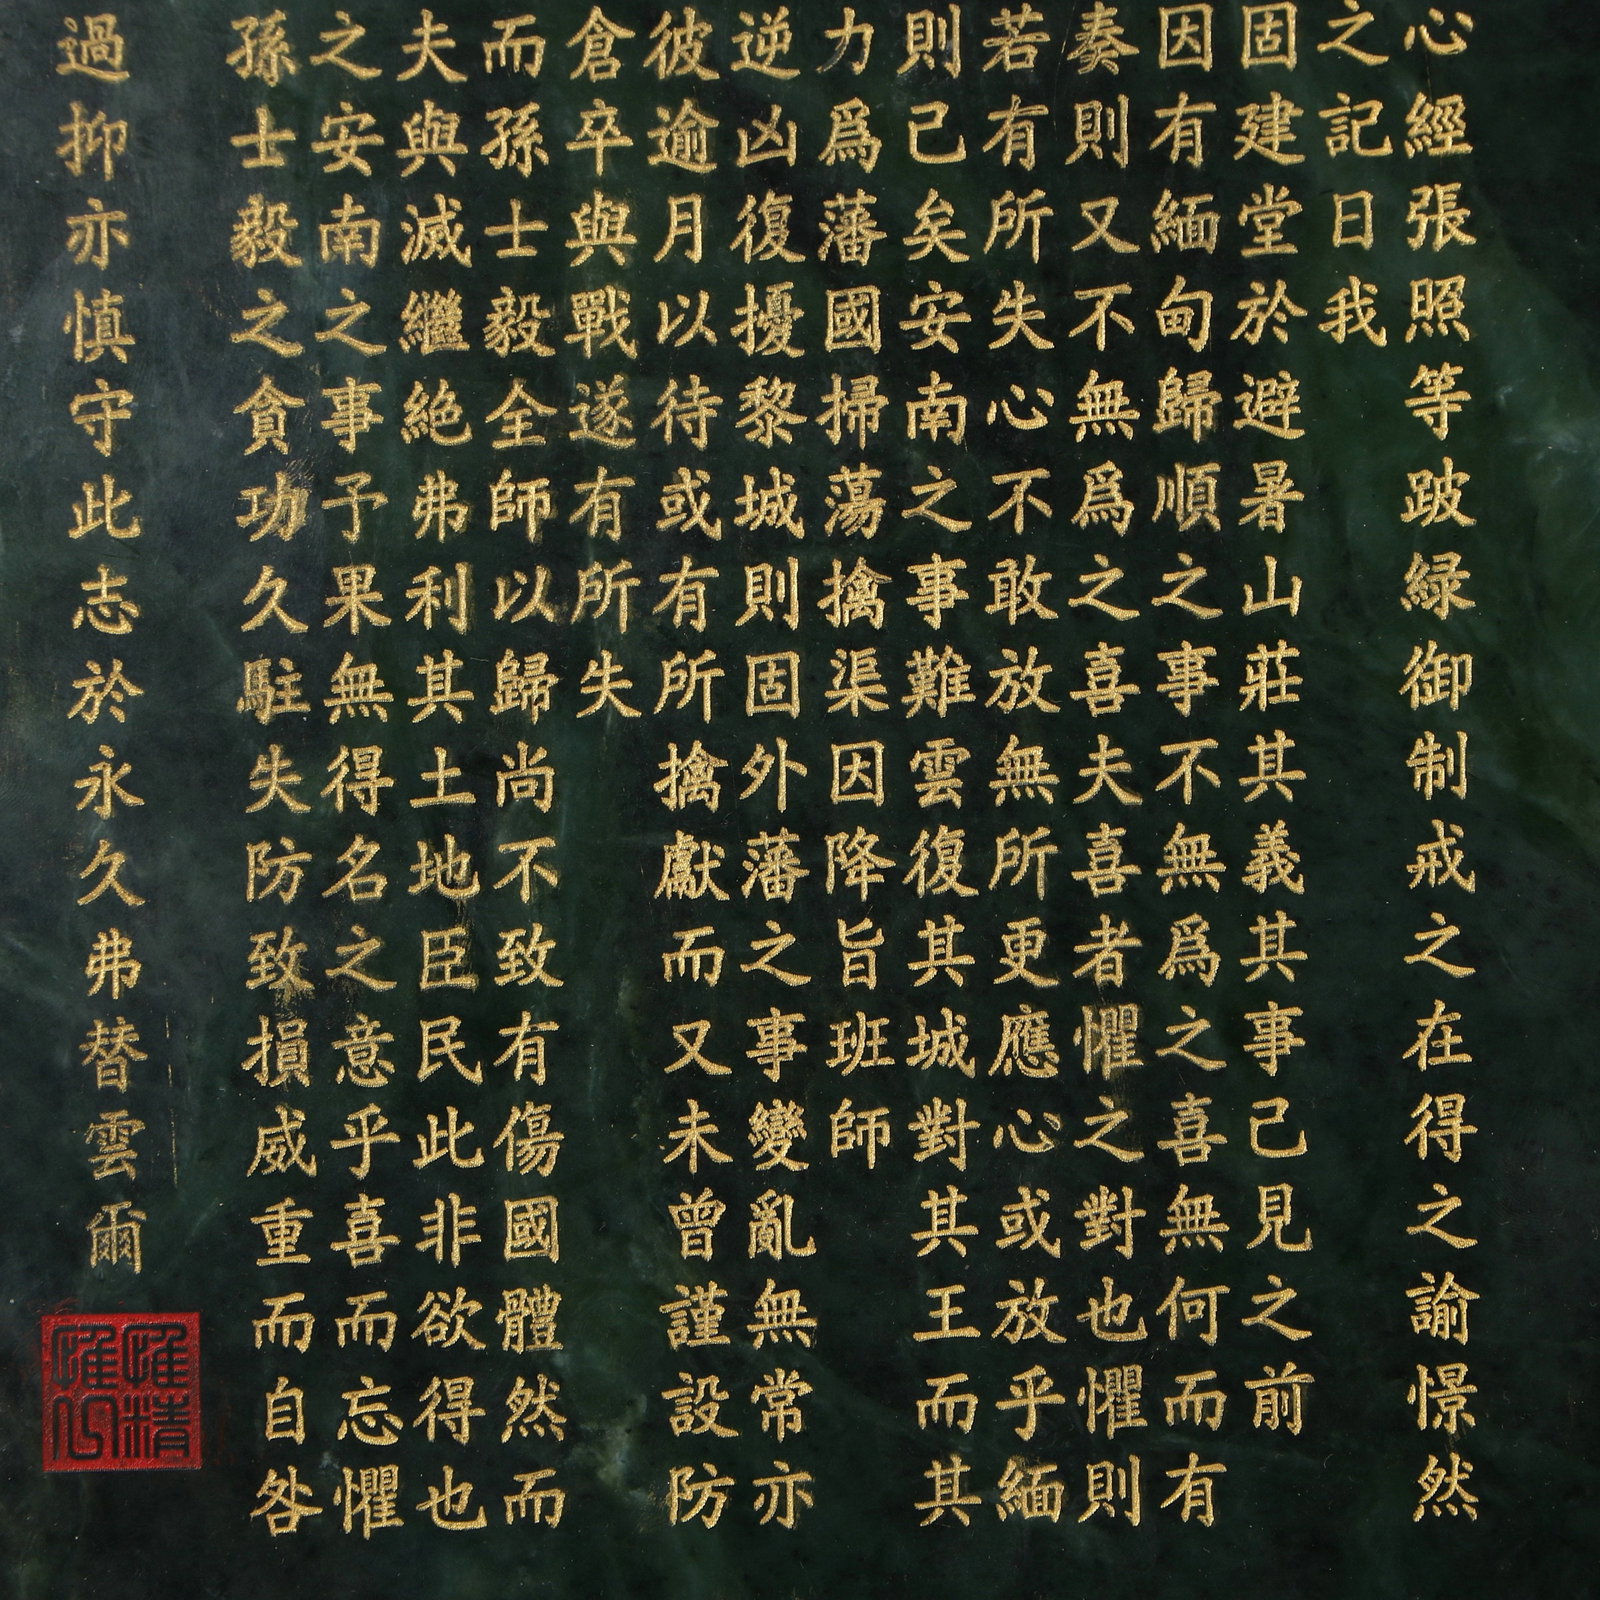 心經張照等跛綠御制戒之在得之諭憬然
之記日我
固建堂於避暑山莊其義其事己見之前
因有緬甸歸順之事不無爲之喜無何而有
奏則又不無爲之喜夫喜者懼之對也懼則
若有所失心不敢放無所更應心或放乎緬
則己矣安南之事難雲復其城對其王而其
力爲藩國掃蕩擒渠因降旨班師
逆凶復擾黎城則固外藩之事變亂無常亦
彼逾月以待或有所擒獻而又未曾謹設防
倉卒與戰遂有所失
而孫士毅全師以歸尚不致有傷國體然而
夫與滅繼絕弗利其土地臣民此非欲得也
之安南之事予果無得名之意乎喜而忘懼
孫士毅之貪功久駐失防致損威重而自咎
過抑亦慎守此志於永久弗替雲爾
惟精惟一